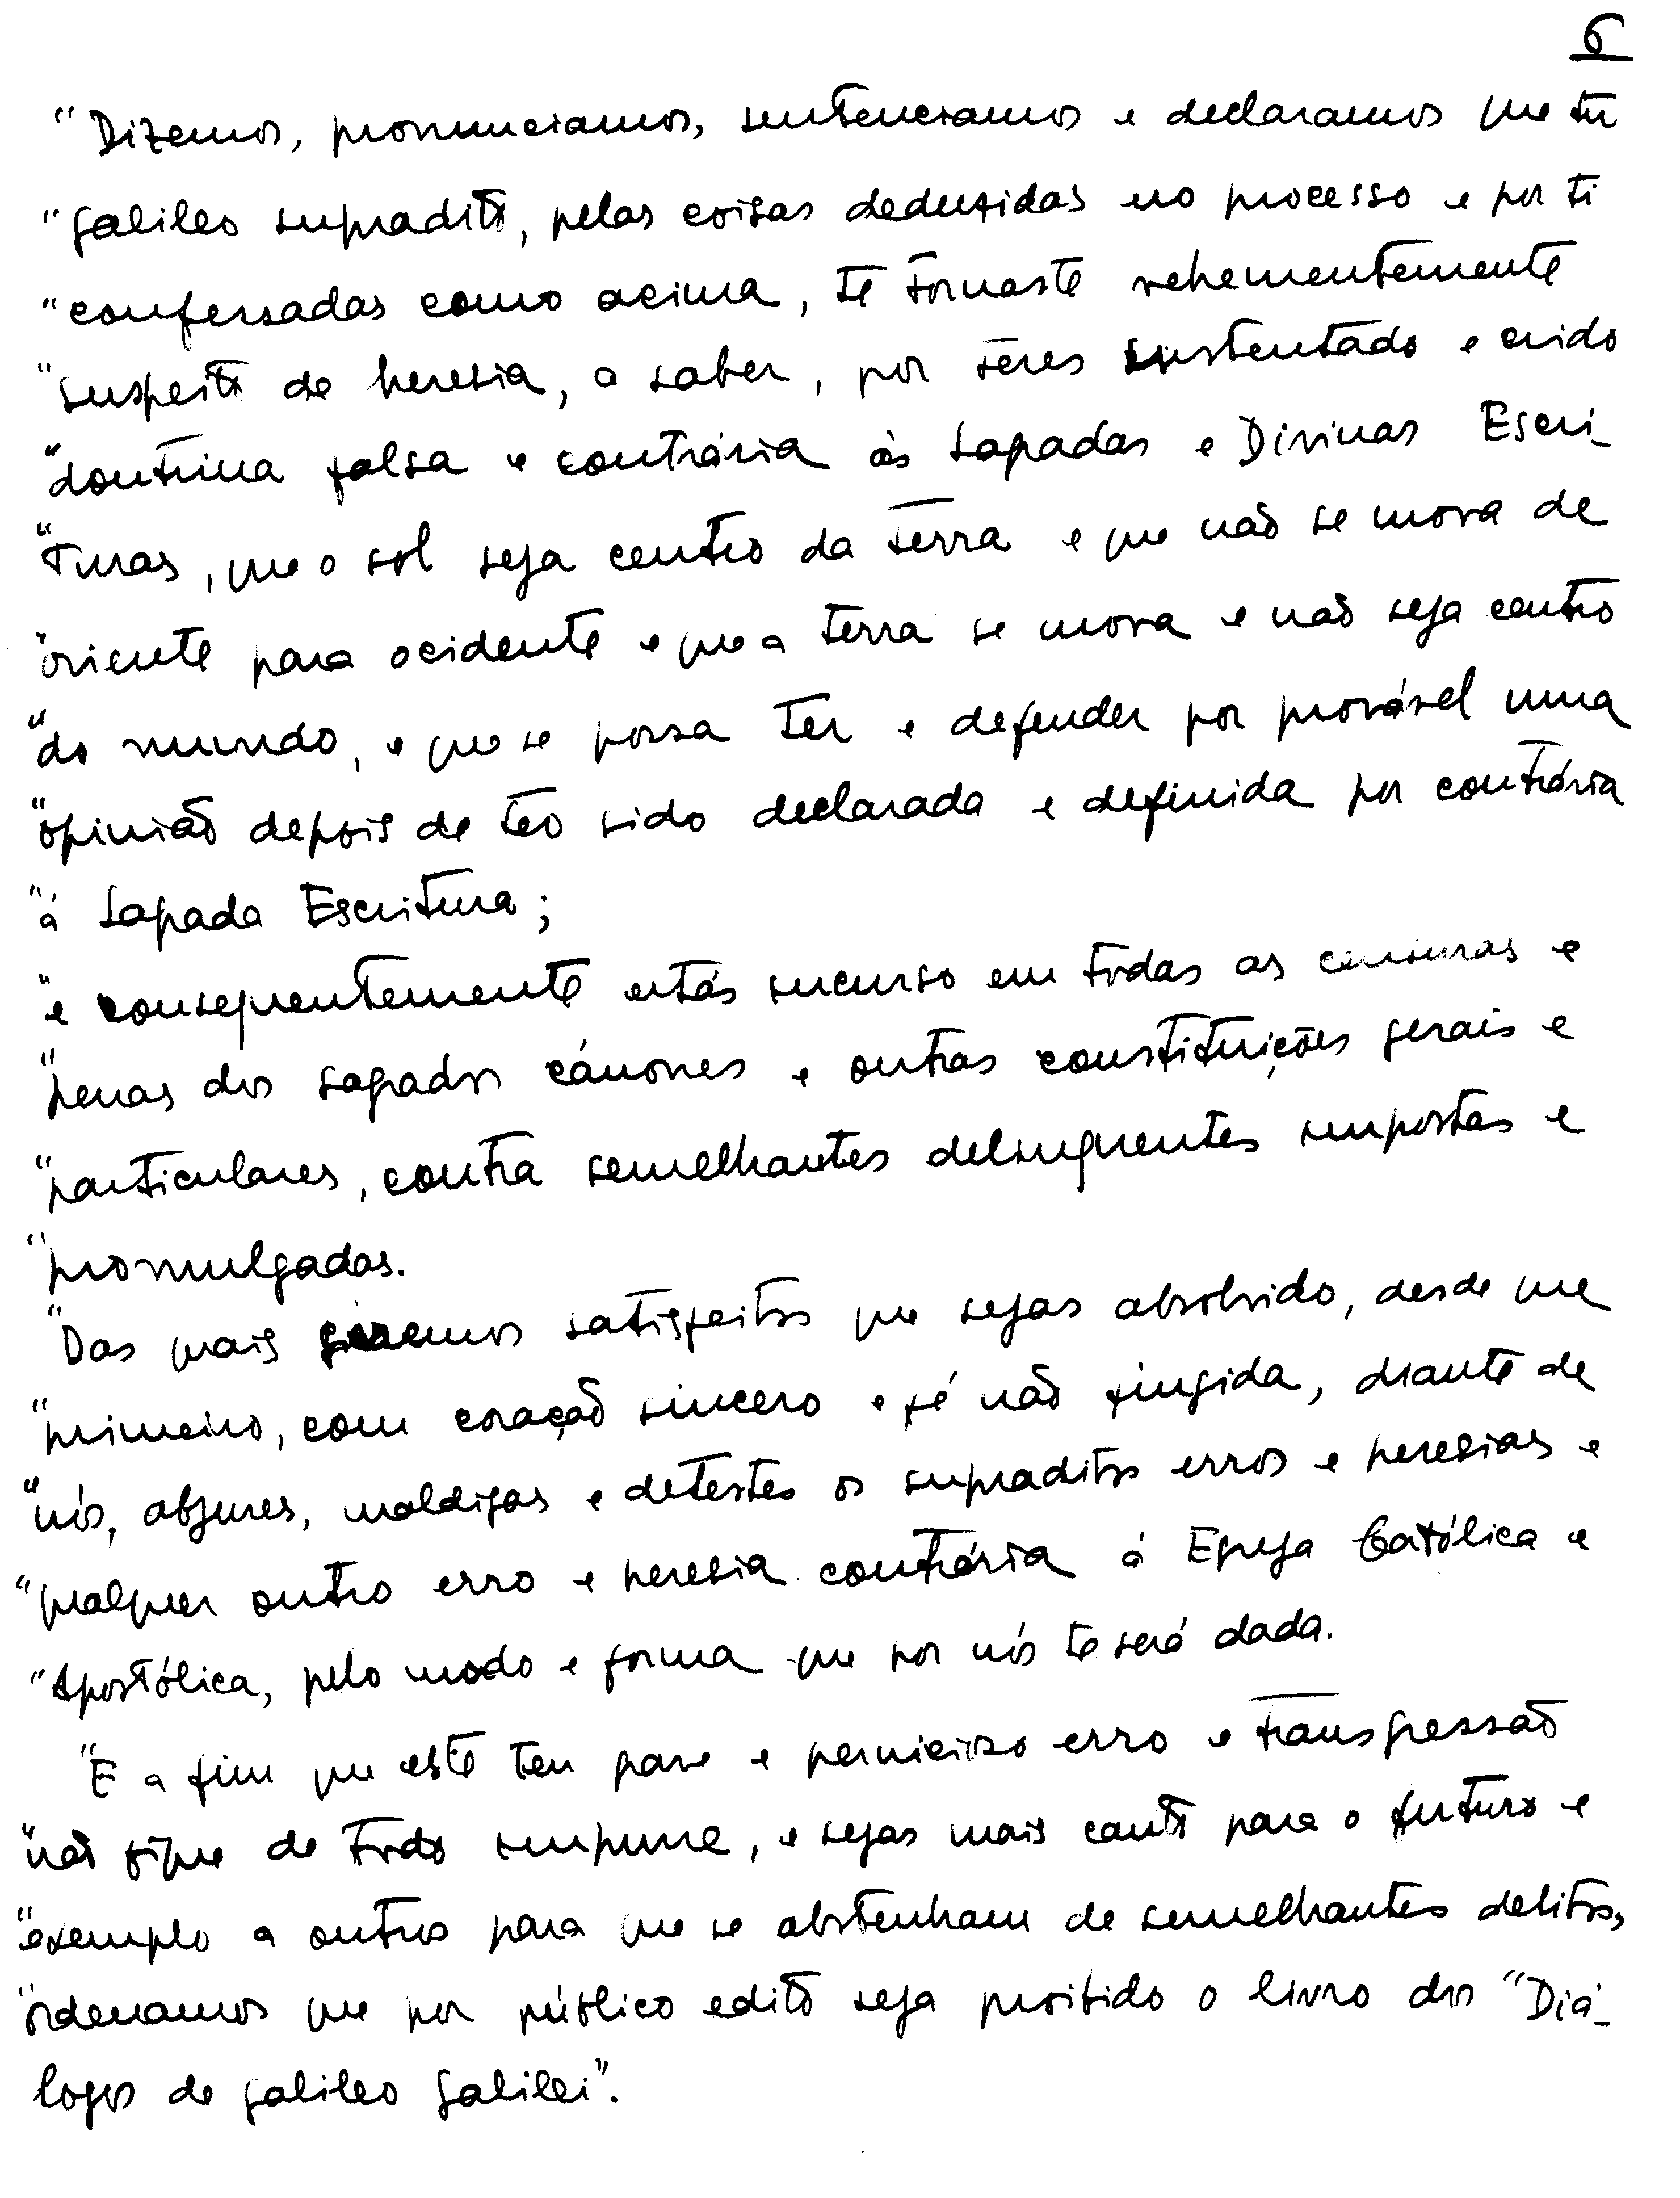 6
"Dizemos, pronunciamos, sentenciamos e declaramos que tu
"Galileo supradito, pelas coisas deduzidas no processo e por ti
"confessadas como acima, te tornaste vehementemente
"suspeito de heresia, a saber, por teres sustentado e crido
"doutrina falsa e contrária às Sagradas e Divinas Escri-
"turas, que o sol seja centro da terra e que não se mova de
"oriente para ocidente e que a terra se mova e não seja centro
"do mundo, e que se possa ter e defender por provável uma
"opinião depois de ter sido declarada e definida por contrária
"á Sagrada Escritura;
"e consequentemente estás incurso em todas as censuras e
"penas dos sagrados cánones e outras constituições gerais e
"particulares, contra semelhantes delinquentes impostas e
"promulgadas.
"Das quais seremos satisfeitos que sejas absolvido, desde que
"primeiro, com coração sincero e fé não fingida, diante de
"nós, abjures, maldigas e detestes os supraditos erros e heresias e
"qualquer outro erro e heresia contrária á Egreja Católica e
"Apostólica, pelo modo e forma que por nós te será dada.
"E a fim que este teu grave e pernicioso erro e transgressão
"não fique de todo impune, e sejas mais cauto para o futuro e
"exemplo a outros para que se abstenham de semelhantes delitos,
"ordenamos que por público edito seja proibido o livro dos "Diá-
logos de Galileo Galilei".